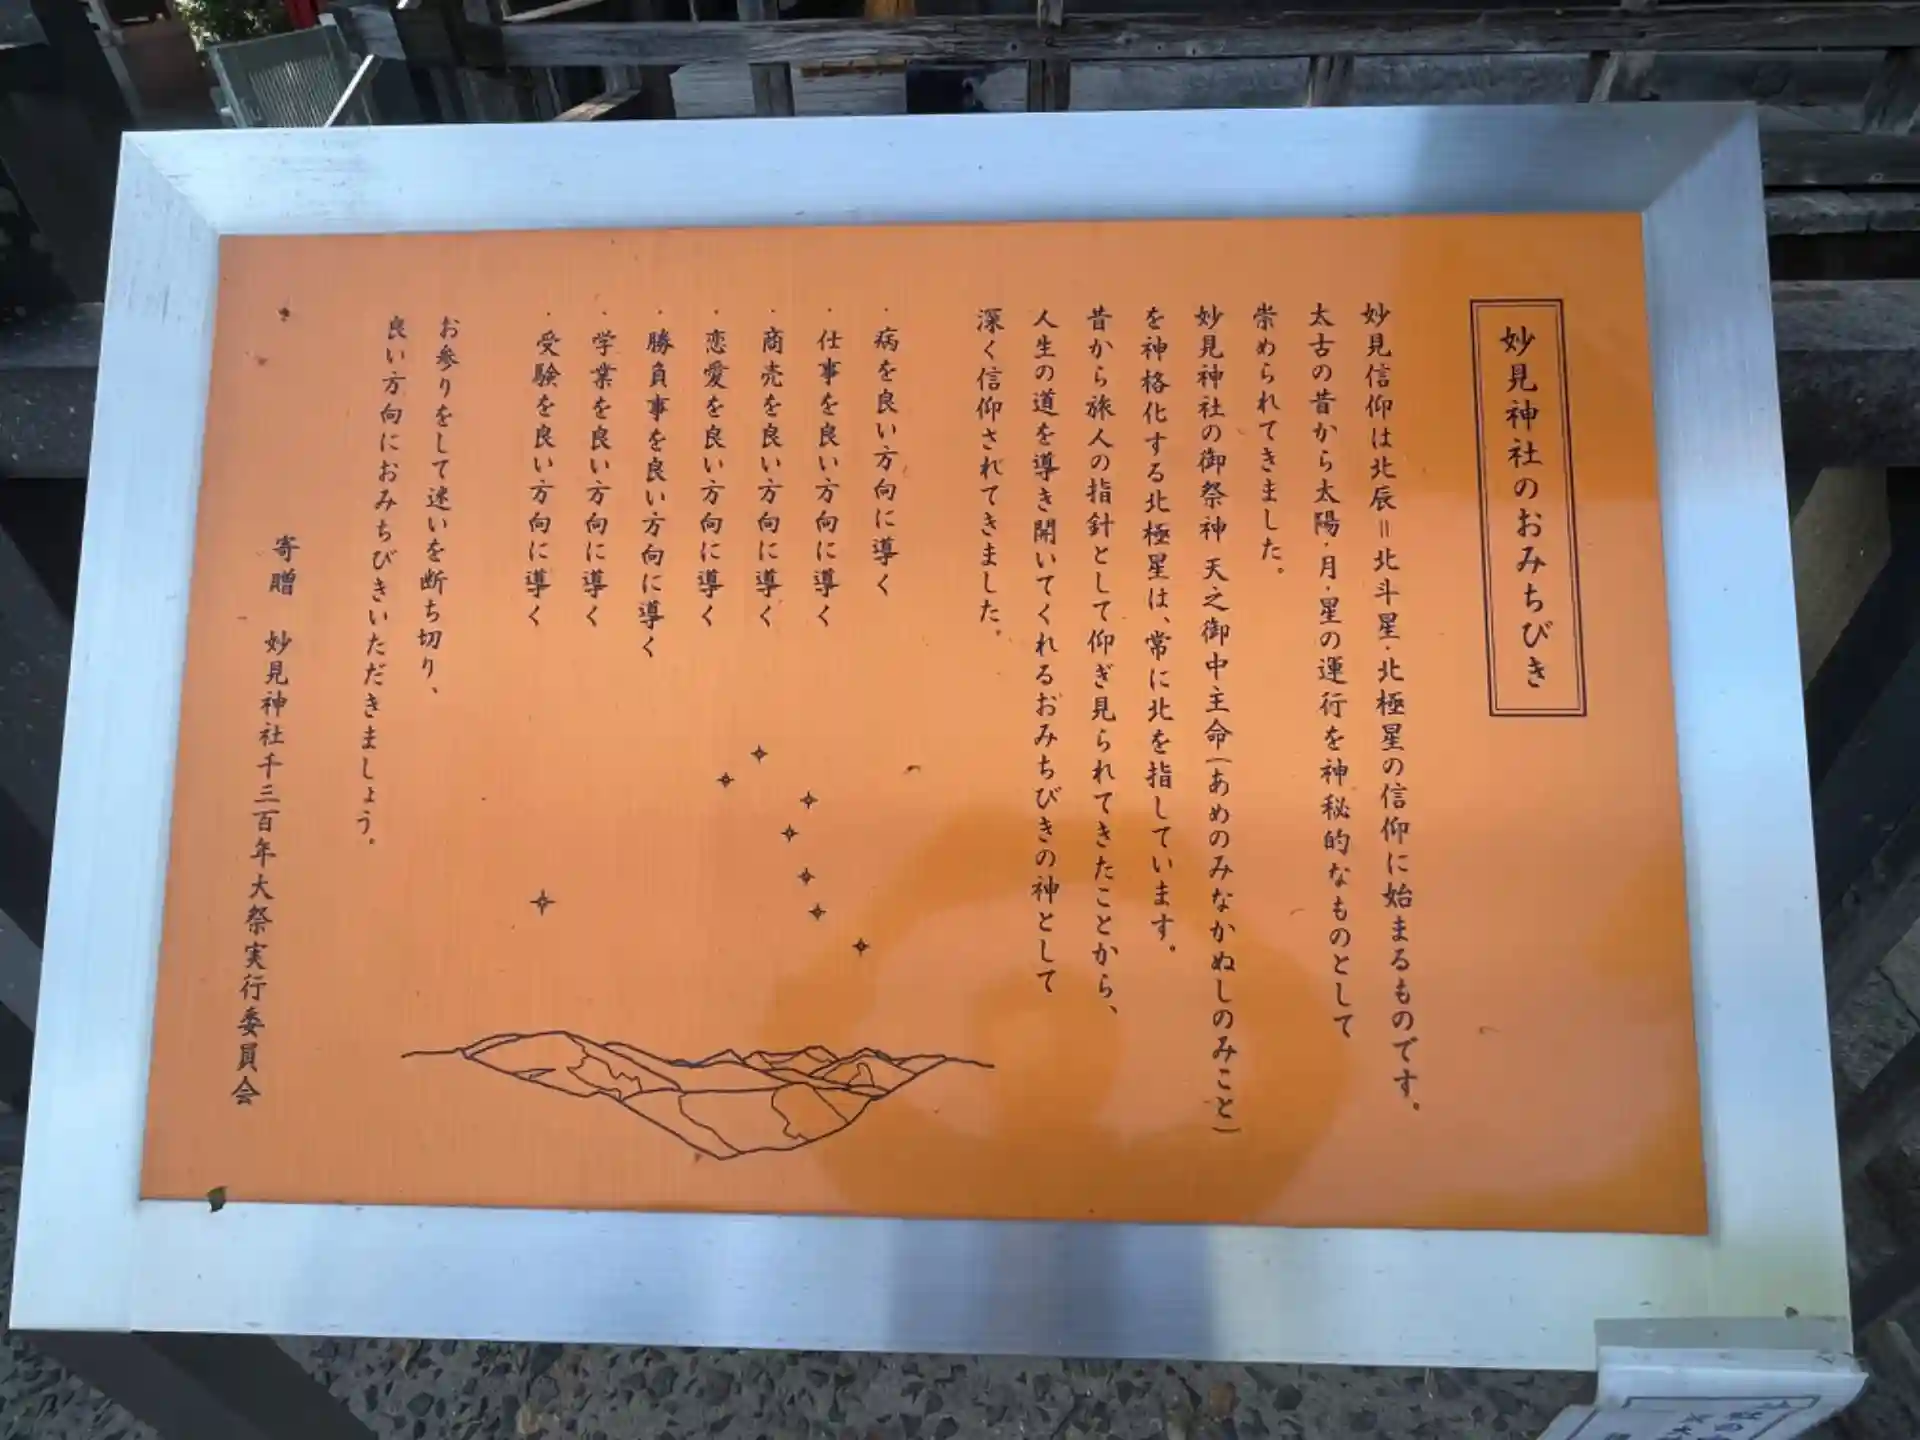 妙見神社のおみちびき
妙見信仰は北辰=北斗星・北極星の信仰に始まるものです。
太古の昔から太陽・月・星の運行を神秘的なものとして
崇められてきました。
妙見神社の御祭神 天之御中主命(あめのみなかぬしのみこと)
を神格化する北極星は、常に北を指しています。
昔から旅人の指針として仰ぎ見られてきたことから、
人生の道を導き開いてくれるおみちびきの神として
深く信仰されてきました。
・病を良い方向に導く
・仕事を良い方向に導く
・商売を良い方向に導く
・恋愛を良い方向に導く
・勝負事を良い方向に導く
・学業を良い方向に導く
・受験を良い方向に導く
お参りをして迷いを断ち切り、
良い方向におみちびきいただきましょう。
寄贈 妙見神社千三百年大祭実行委員会